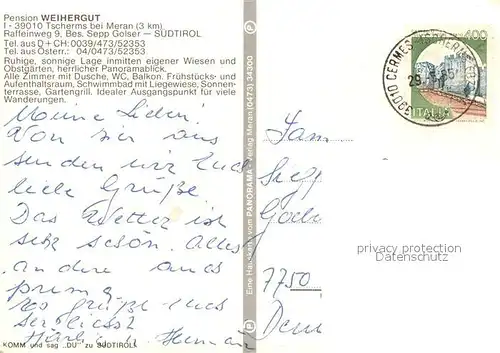 Pension WEIHERGUT
I - 39010 Tscherms bei Meran (3 km)
Raffeinweg 9, Bes. Sepp Golser – SÜDTIROL
Tel. aus D + CH: 0039/473/52353
Tel. aus Österr.: 04/0473/52353
Ruhige, sonnige Lage inmitten eigener Wiesen und
Obstgärten, herrlicher Panoramablick.
Alle Zimmer mit Dusche, WC, Balkon. Frühstücks- und
Aufenthaltsraum, Schwimmbad mit Liegewiese, Sonnen-
terrasse, Gartengrill. Idealer Ausgangspunkt für viele
Wanderungen.
Meine Lieben!
Von hier aus
senden wir Euch
liebe Grüße.
Das Wetter ist
sehr schön. Alles
andere aus
prima
es grüße Euch
herzlichst
KOMM und sag „DU" zu SÜDTIROL
Eine Hauskarte vom PANORAMA-Verlag Meran (0473) 34300
400
39010 CERMES-TSCHERMS
ITALIA
Fam
7750
privacy protection
Datenschutz